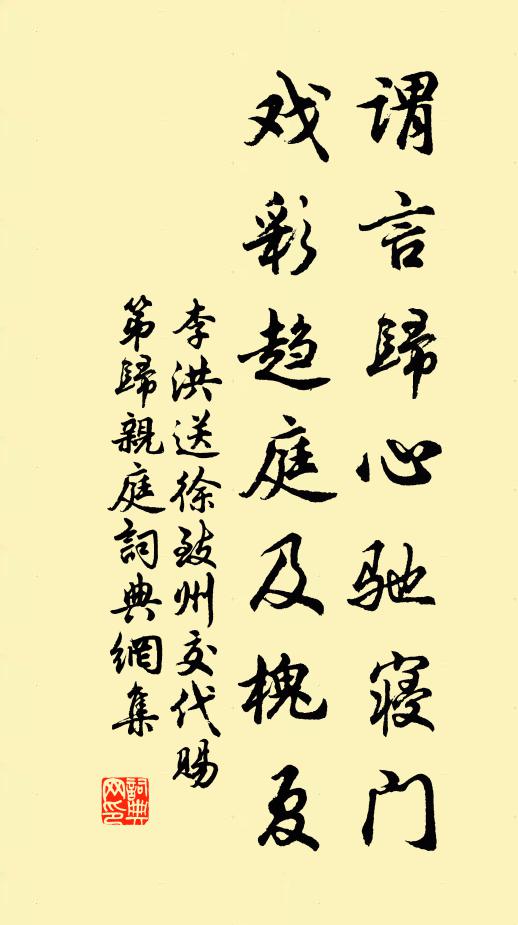 谓言歸心驰寝门
戏彩趋庭及槐夏
李洪送徐致州交代赐
第歸親庭詞典網集
詞典网印